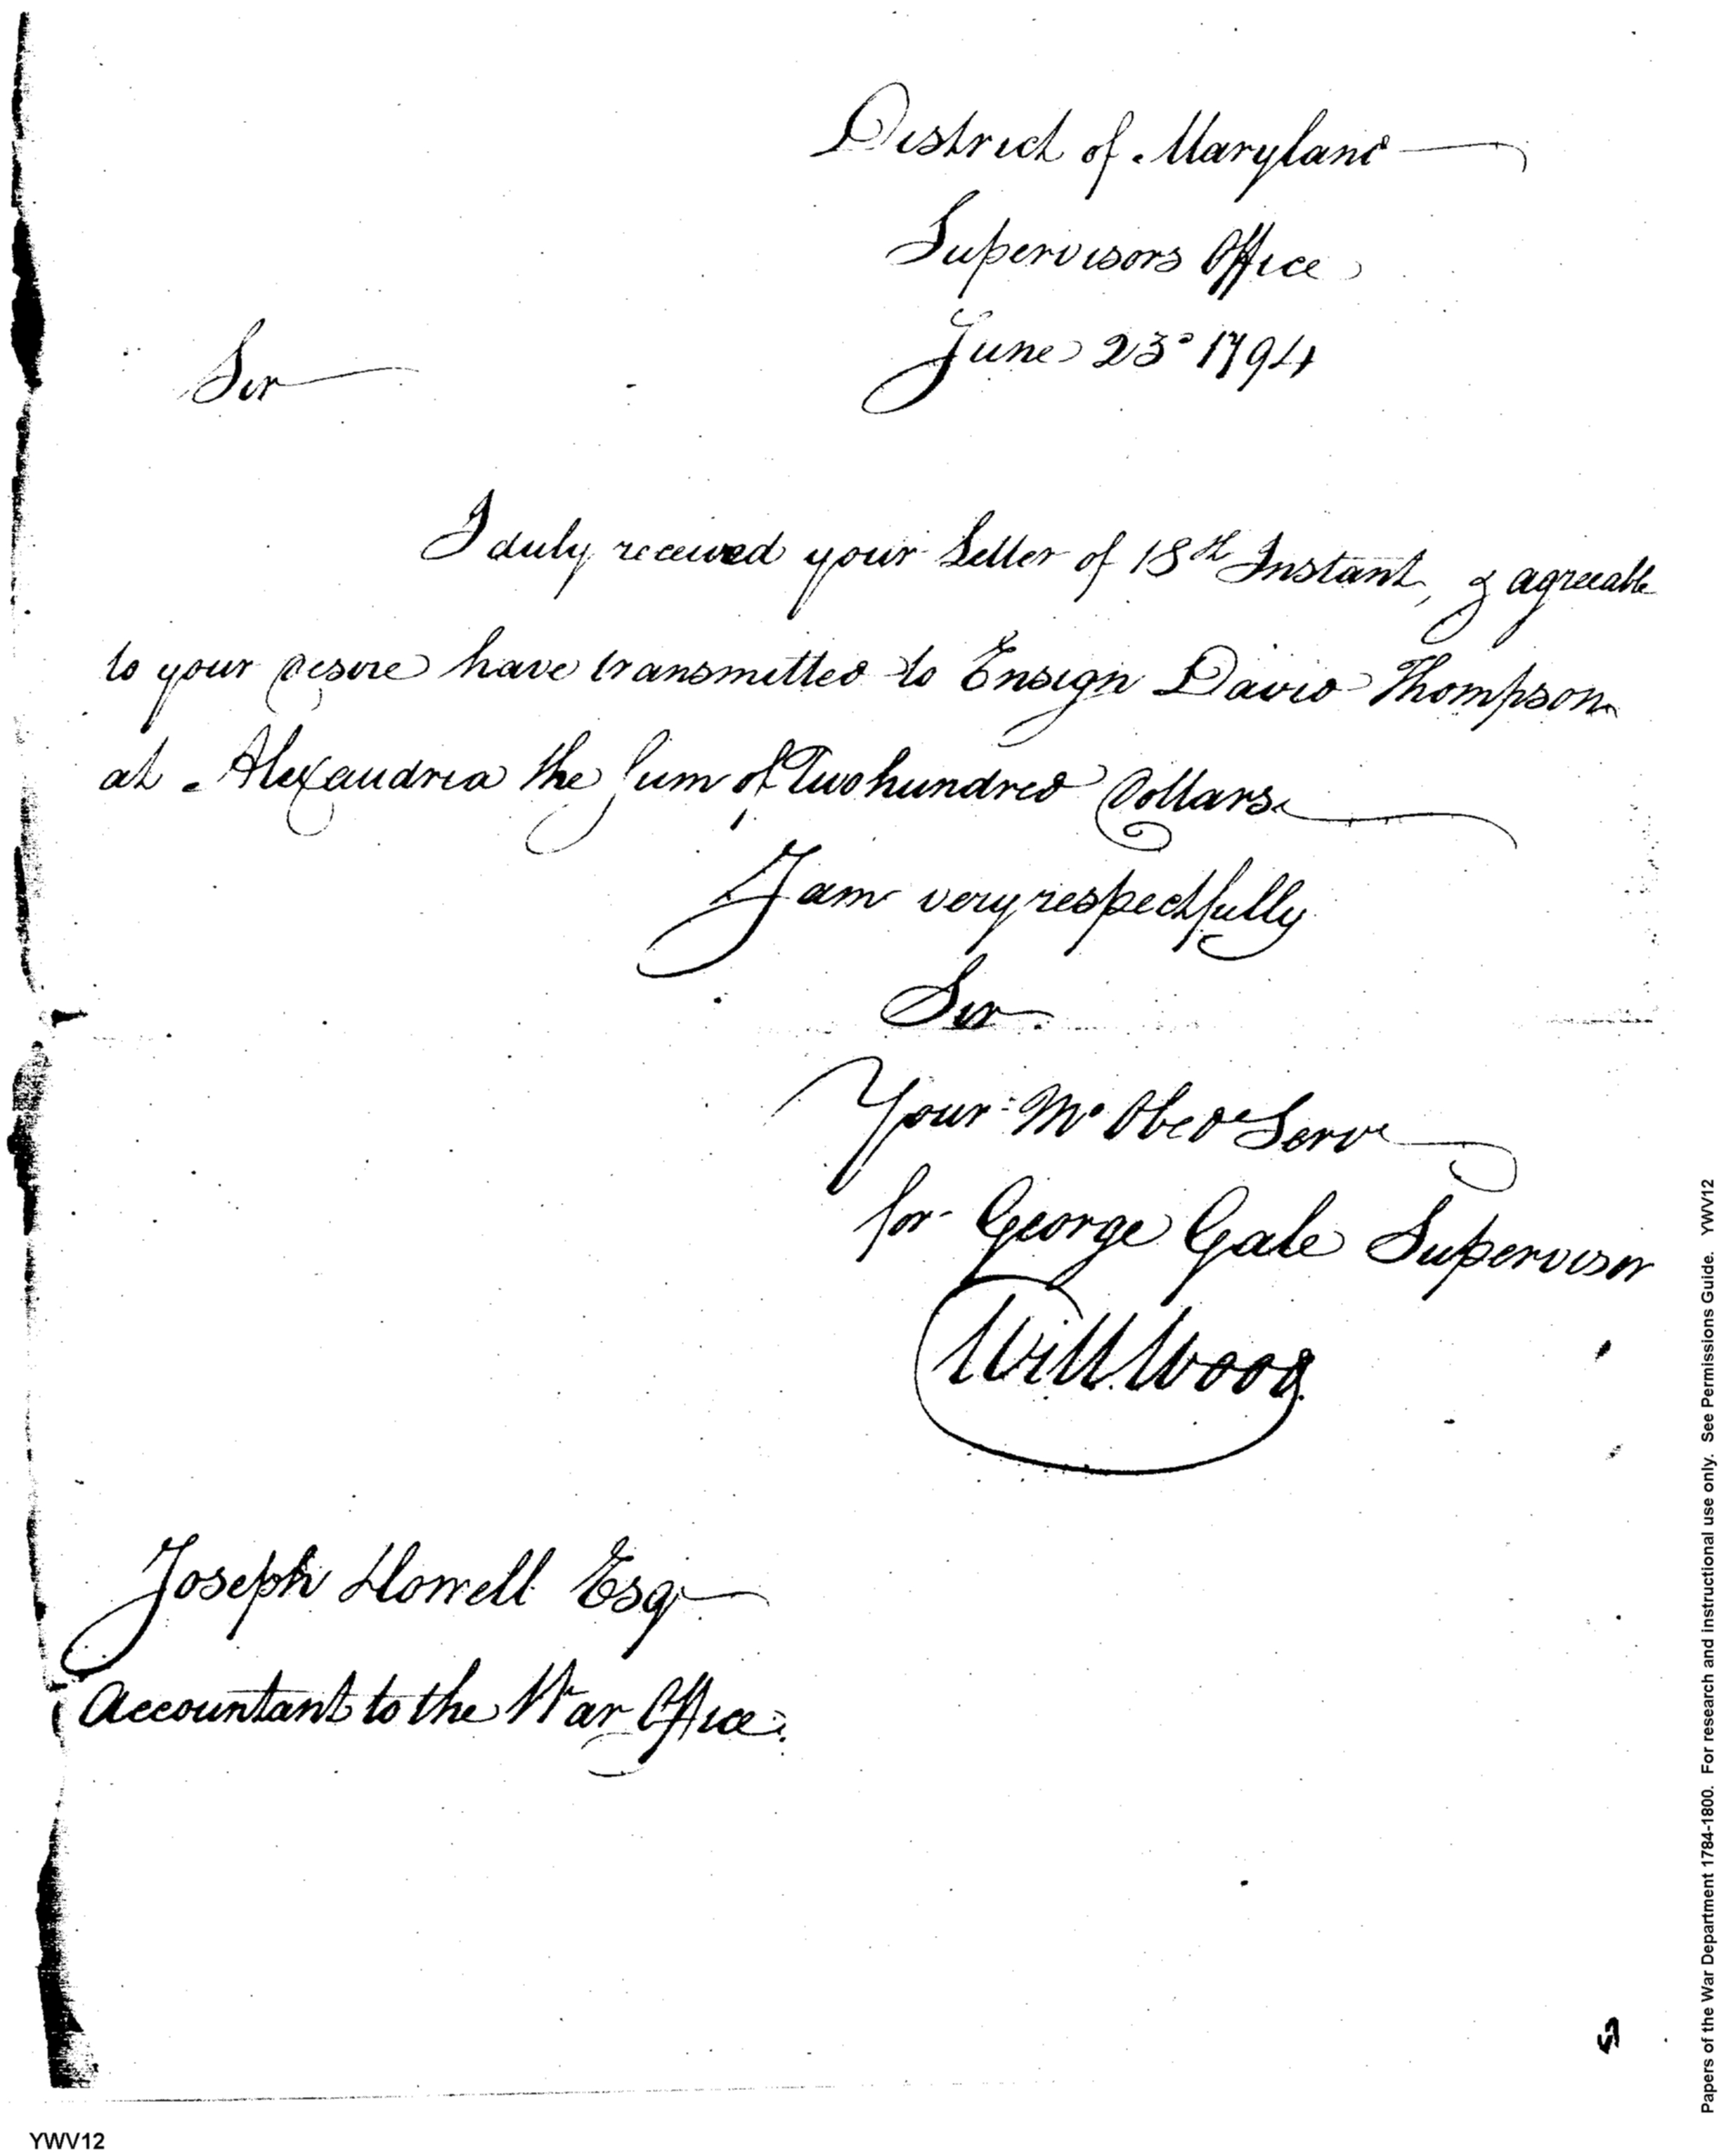 District of Maryland
Supervisors Office
June 23d 1794
Sir
I duly received your Letter of 18th Instant, & agreeable
to your desire have transmitted to Ensign David Thompson
at Alexandria the Sum of Two hundred Dollars
I am very respectfully
Sir
Your Mo Obed Serve
for George Gale Supervisor
Will Wood
Joseph Howell Esqr
Accountant to the War Office.
YWV12
Papers of the War Department 1784-1800. For research and instructional use only. See Permissions Guide. YWV12